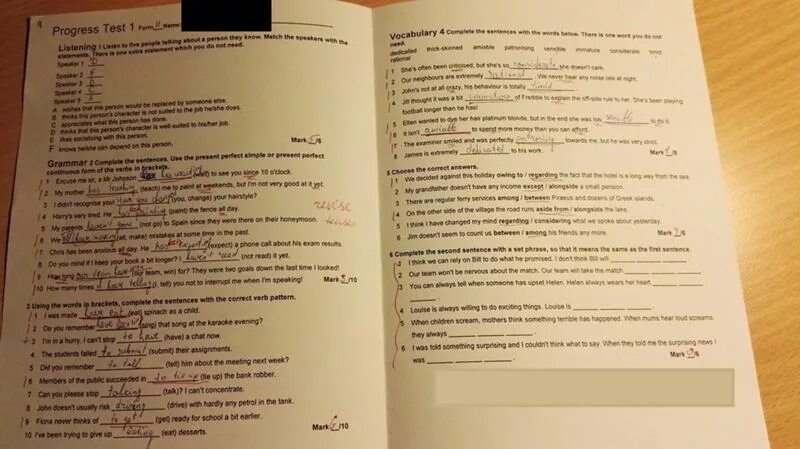 Progress Test 1 Form 11 Name:
Listening 1 Listen to five people talking about a person they know. Match the speakers with the
statements. There is one extra statement which you do not need.
Speaker 1 D
Speaker 2 F
Speaker 3
Speaker 4
Speaker 5 A
A wishes that this person would be replaced by someone else.
B thinks this person's character is not suited to the job he/she does.
C appreciates what this person has done.
D thinks that this person's character is well-suited to his/her job.
E likes socialising with this person.
F knows he/she can depend on this person.
Mark 5/5
Grammar 2 Complete the sentences. Use the present perfect simple or present perfect
continuous form of the verbs in brackets.
1 Excuse me sir, a Mr Johnson to see you since 10 o'clock.
2 My mother has (teach) me to paint at weekends, but I'm not very good at it yet.
3 I didn't recognise you! Have you (you, change) your hairstyle?
4 Harry's very tired. He (paint) the fence all day.
5 My parents haven't gone (not go) to Spain since they were there on their honeymoon.
6 We (all, make) mistakes at some time in the past.
7 Chris has been anxious all day. He (expect) a phone call about his exam results.
8 Do you mind if I keep your book a bit longer? I haven't (not read) it yet.
9 How long (your team, win) for? They were two goals down the last time I looked!
10 How many times (I, tell) you not to interrupt me when I'm speaking!
revise
tenses
Mark /10
3 Using the words in brackets, complete the sentences with the correct verb pattern.
1 I was made have eat (eat) spinach as a child.
2 Do you remember (sing) that song at the karaoke evening?
3 I'm in a hurry. I can't stop to have (have) a chat now.
4 The students failed to submit (submit) their assignments.
5 Did you remember to tell (tell) him about the meeting next week?
6 Members of the public succeeded in to tie up (tie up) the bank robber.
7 Can you please stop talking (talk)? I can't concentrate.
8 John doesn't usually risk driving (drive) with hardly any petrol in the tank.
9 Fiona never thinks of to get (get) ready for school a bit earlier.
10 I've been trying to give up eating (eat) desserts.
Mark /10
Vocabulary 4 Complete the sentences with the words below. There is one word you do not
need.
dedicated thick-skinned amiable patronising sensible immature considerate timid
rational
1 She's often been criticised, but she's so considerate she doesn't care.
2 Our neighbours are extremely rational. We never hear any noise late at night.
3 John's not at all crazy, his behaviour is totally timid
4 Jill thought it was a bit of Freddie to explain the off-side rule to her. She's been playing
football longer than he has!
5 Ellen wanted to dye her hair platinum blonde, but in the end she was too to go it.
6 It isn't amiable to spend more money than you can afford.
7 The examiner smiled and was perfectly towards me, but he was very strict.
8 James is extremely dedicated to his work.
Mark /8
5 Choose the correct answers.
1 We decided against this holiday owing to / regarding the fact that the hotel is a long way from the sea.
2 My grandfather doesn't have any income except / alongside a small pension.
3 There are regular ferry services among / between Piraeus and dozens of Greek islands.
4 On the other side of the village the road runs aside from / alongside the lake.
5 I think I have changed my mind regarding / considering what we spoke about yesterday.
6 Jim doesn't seem to count us between / among his friends any more.
Mark /6
6 Complete the second sentence with a set phrase, so that it means the same as the first sentence.
1 I think we can rely on Bill to do what he promised. I don't think Bill will
2 Our team won't be nervous about the match. Our team will take the match
3 You can always tell when someone has upset Helen. Helen always wears her heart
4 Louise is always willing to do exciting things. Louise is
5 When children scream, mothers think something terrible has happened. When mums hear loud screams
they always
6 I was told something surprising and I couldn't think what to say. When they told me the surprising news I
was
Mark 0/6